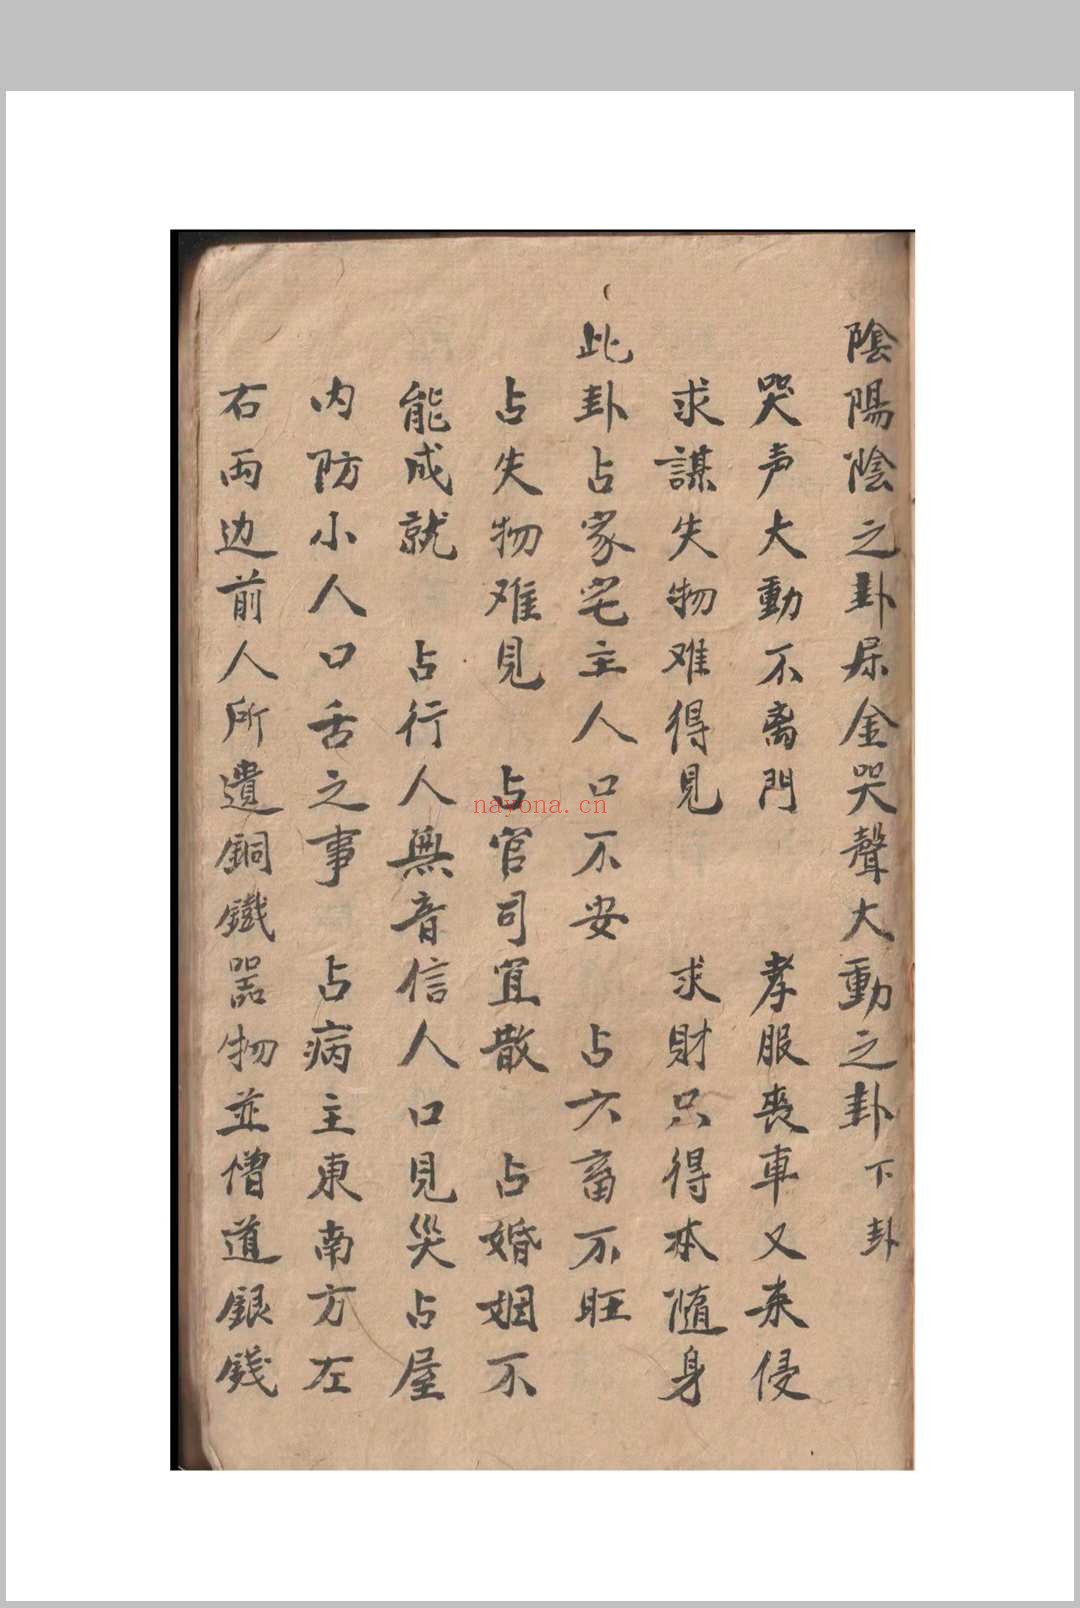 陰陽陰之卦屎金哭聲大動之卦下卦
哭声大動不离門 孝服丧車又来侵
求謀失物难得見 求財只得本隨身
此卦占家宅主人口不安 占六畜不旺
占失物难見 占官司宜散 占婚姻不
能成就 占行人無音信人口見災占屋
内防小人口舌之事 占病主東南方左
右両边前人所遺銅鐵器物並僧道銀錢
nayona.cn